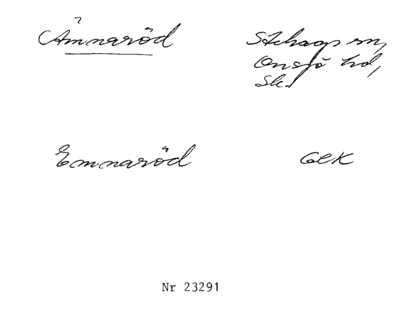 Ämnaröd
Stehags sn,
Onsjö hd,
Sk.
Emnaröd
GEK
Nr 23291